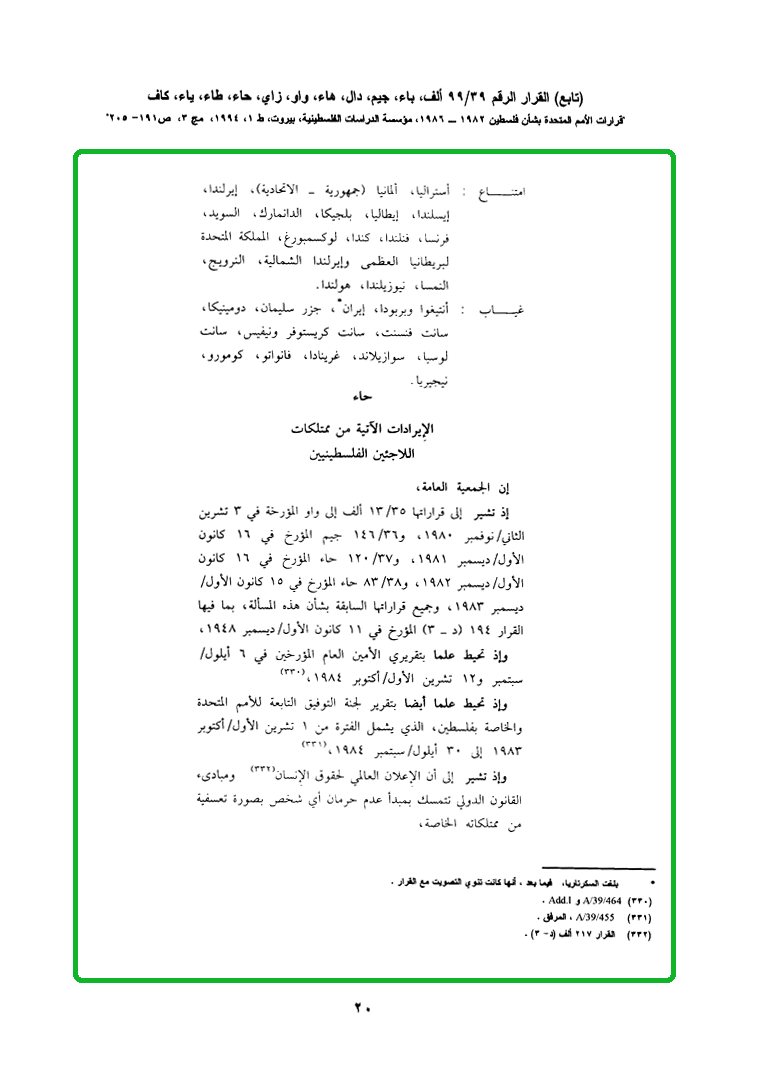 (تابع) القرار الرقم ٩٩/٣٩ ألف، باء، جيم، دال، هاء، واو، زاي، حاء، طاء، ياء، كاف
"قرارات الأمم المتحدة بشأن فلسطين ١٩٨٢ ــ ١٩٨٦، مؤسسة الدراسات الفلسطينية، بيروت، ط ١، ١٩٩٤، مج ٣، ص١٩١- ٢٠٥"
امتنــــاع : أستراليا، ألمانيا (جمهورية ــ الاتحادية)، إيرلندا،
إيسلندا، إيطاليا، بلجيكا، الدانمارك، السويد،
فرنسا، فنلندا، كندا، لوكسمبورغ، المملكة المتحدة
لبريطانيا العظمى وإيرلندا الشمالية، النرويج،
النمسا، نيوزيلندا، هولندا.
غيــــاب : أنتيغوا وبربودا، إيران*، جزر سليمان، دومينيكا،
سانت فنسنت، سانت كريستوفر ونيفيس، سانت
لوسيا، سوازيلاند، غرينادا، فانواتو، كومورو،
نيجيريا.
حاء
الإيرادات الآتية من ممتلكات
اللاجئين الفلسطينيين
إن الجمعية العامة،
إذ تشير إلى قراراتها ١٣/٣٥ ألف إلى واو المؤرخة في ٣ تشرين
الثاني/نوفمبر ١٩٨٠، و١٤٦/٣٦ جيم المؤرخ في ١٦ كانون
الأول/ديسمبر ١٩٨١، و١٢٠/٣٧ حاء المؤرخ في ١٦ كانون
الأول/ديسمبر ١٩٨٢، و٨٣/٣٨ حاء المؤرخ في ١٥ كانون الأول/
ديسمبر ١٩٨٣، وجميع قراراتها السابقة بشأن هذه المسألة، بما فيها
القرار ١٩٤ (د ــ ٣) المؤرخ في ١١ كانون الأول/ديسمبر ١٩٤٨،
وإذ تحيط علما بتقريري الأمين العام المؤرخين في ٦ أيلول/
سبتمبر و١٢ تشرين الأول/أكتوبر ١٩٨٤،(٣٣٠)
وإذ تحيط علما أيضا بتقرير لجنة التوفيق التابعة للأمم المتحدة
والخاصة بفلسطين، الذي يشمل الفترة من ١ تشرين الأول/أكتوبر
١٩٨٣ إلى ٣٠ أيلول/سبتمبر ١٩٨٤،(٣٣١)
وإذ تشير إلى أن الإعلان العالمي لحقوق الإنسان(٣٣٢) ومبادىء
القانون الدولي تتمسك بمبدأ عدم حرمان أي شخص بصورة تعسفية
من ممتلكاته الخاصة،
* بلغت السكرتاريا، فيما بعد ، أنها كانت تنوي التصويت مع القرار .
(٣٣٠) A/39/464 و Add.1 .
(٣٣١) A/39/455 ، المرفق .
(٣٣٢) القرار ٢١٧ ألف (د- ٣) .
٢٠